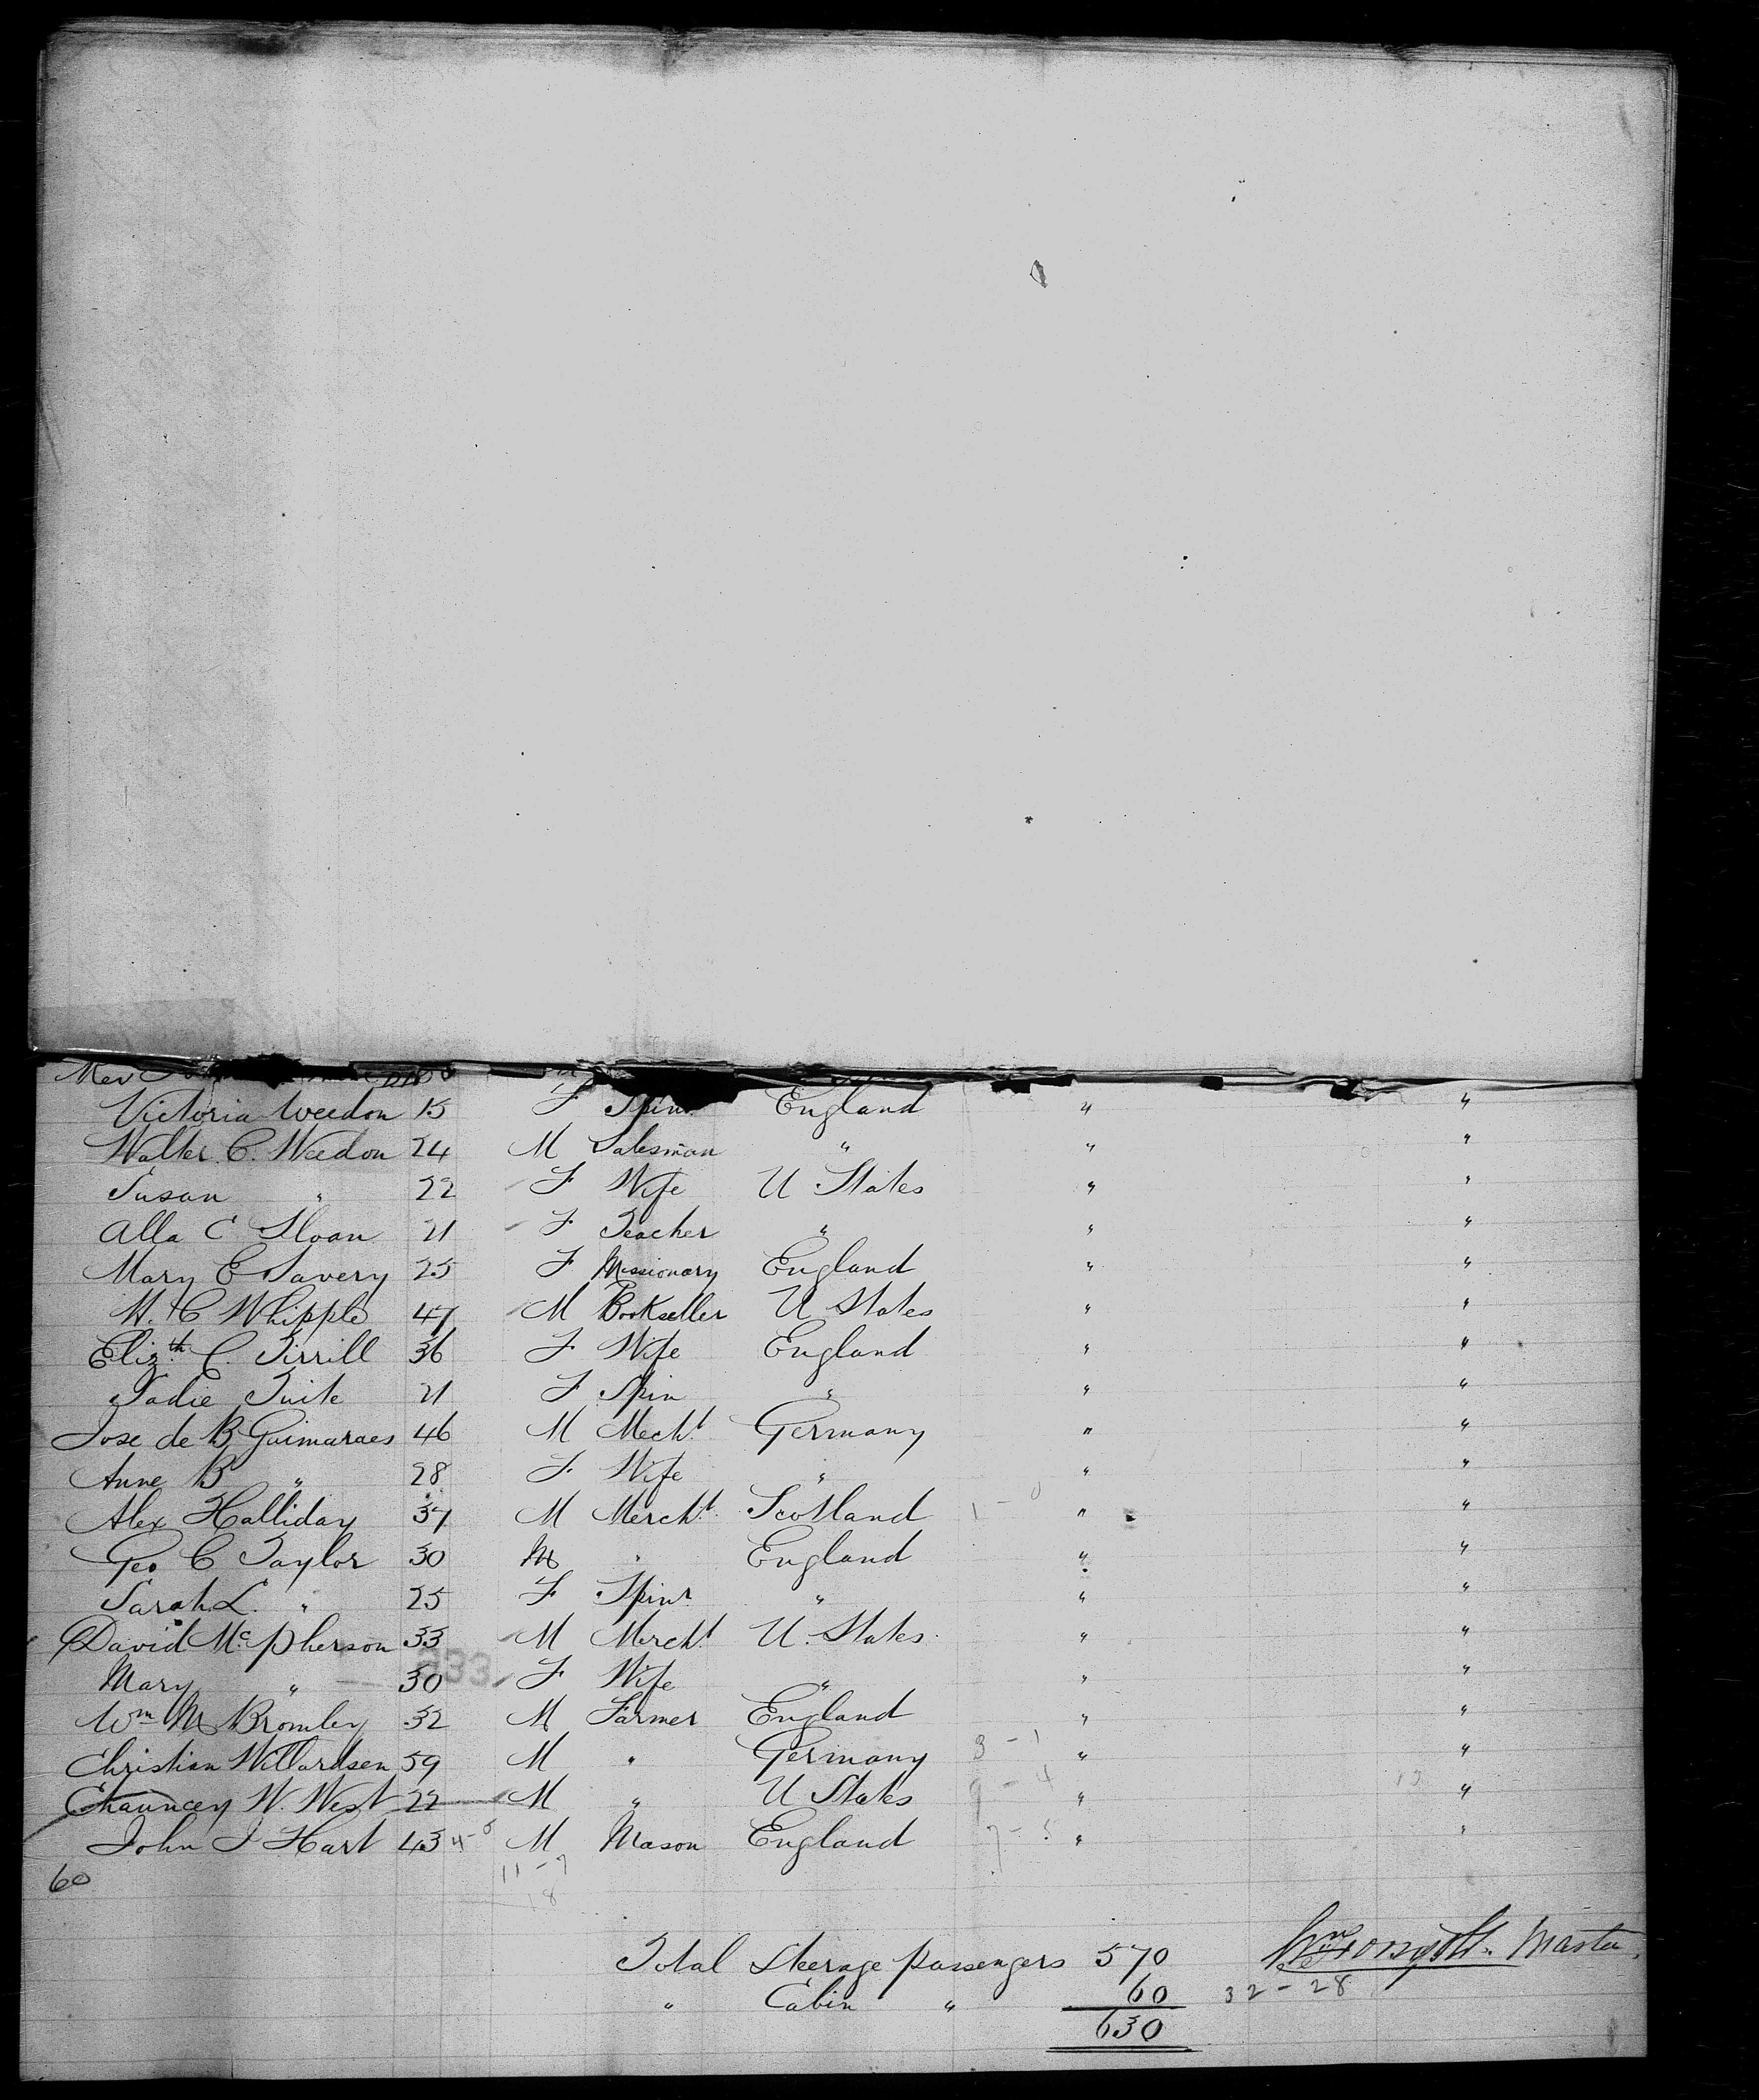 Victoria Weedon 15 F Spinr England " "
Walter. C. Weedon 24 M Salesman " " "
Susan " 22 F Wife U States " "
Alla C Sloan 21 F Teacher " " "
Mary E Savery 25 F Missionary England " "
W. C Whipple 47 M Bookseller U States " "
Elizth C. Tirrill 36 F Wife England " "
Sadie Tuite 21 F Spin " " "
Jose de B Guimaraes 46 M Mecht Germany " "
Anne B " 28 F Wife " " "
Alex Halliday 37 M Mercht Scotland 1 - 0 " "
Geo C Taylor 30 M " England " "
Sarah L. " 25 F Spinr " " "
David McPherson 33 M Mercht U. States " "
Mary " 30 F Wife " " "
Wm M Bromley 32 M Farmer England " "
Christian Willardsen 59 M " Germany 3 - 1 " "
Chauncey W. West 22 M " U States 9 - 4 " "
John J Hart 43 4-5 M Mason England 7 - 5 " "
60 11-7
18
Total Steerage passengers 570 Wm Forsyth. Master.
" Cabin " 60 32-28
630